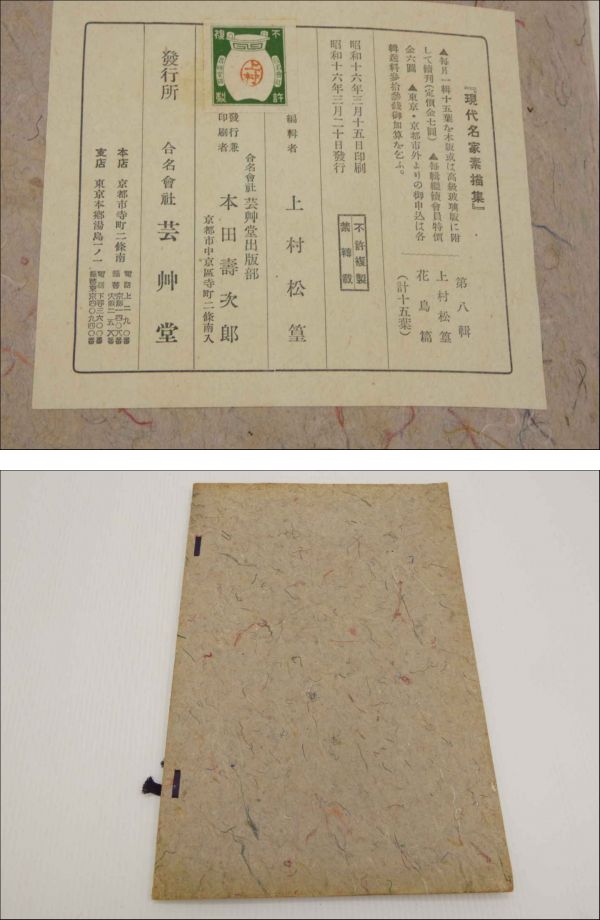 『現代名家素描集』
第八輯
上村松篁
花鳥篇
(計十五葉)
▲毎月一輯十五葉を木版或は高級玻璃版に附
して續刊(定價金七圓) ▲毎輯繼續會員特價
金六圓 ▲東京・京都市外よりの御申込は各
輯送料參拾參錢御加算を乞ふ。
不許複製
禁轉載
昭和十六年三月十五日印刷
昭和十六年三月二十日發行
編輯者
上村松篁
合名會社 芸艸堂出版部
發行兼
印刷者
本田壽次郎
京都市中京區寺町二條南入
不許
複製
發行所
合名會社
芸艸堂
本店 京都市寺町二條南
支店 東京本郷湯島一ノ一